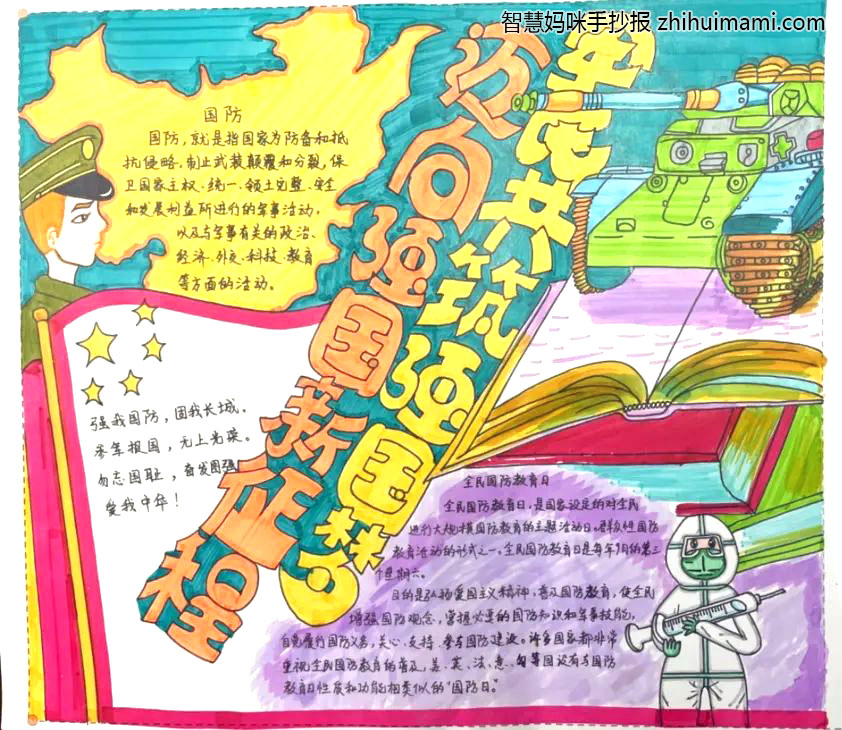 智慧妈咪手抄报 zhihuimami.com
全民共筑强国梦
迈向强国新征程
国防
国防,就是指国家为防备和抵
抗侵略、制止武装颠覆和分裂,保
卫国家主权、统一、领土完整、安全
和发展利益所进行的军事活动,
以及与军事有关的政治、
经济、外交、科技、教育
等方面的活动。
强我国防,固我长城。
参军报国,无上光荣。
勿忘国耻,奋发图强
爱我中华!
全民国防教育日
全民国防教育日,是国家设定的对全民
进行大规模国防教育的主题活动日。群众性国防
教育活动的形式之一。全民国防教育日是每年9月的第三
个星期六。
目的是弘扬爱国主义精神,普及国防教育,使全民
增强国防观念,掌握必要的国防知识和军事技能,
自觉履行国防义务,关心、支持、参与国防建设。许多国家都非常
重视全民国防教育的普及,美、英、法、意、匈等国设有与国防
教育日性质和功能相类似的“国防日。”